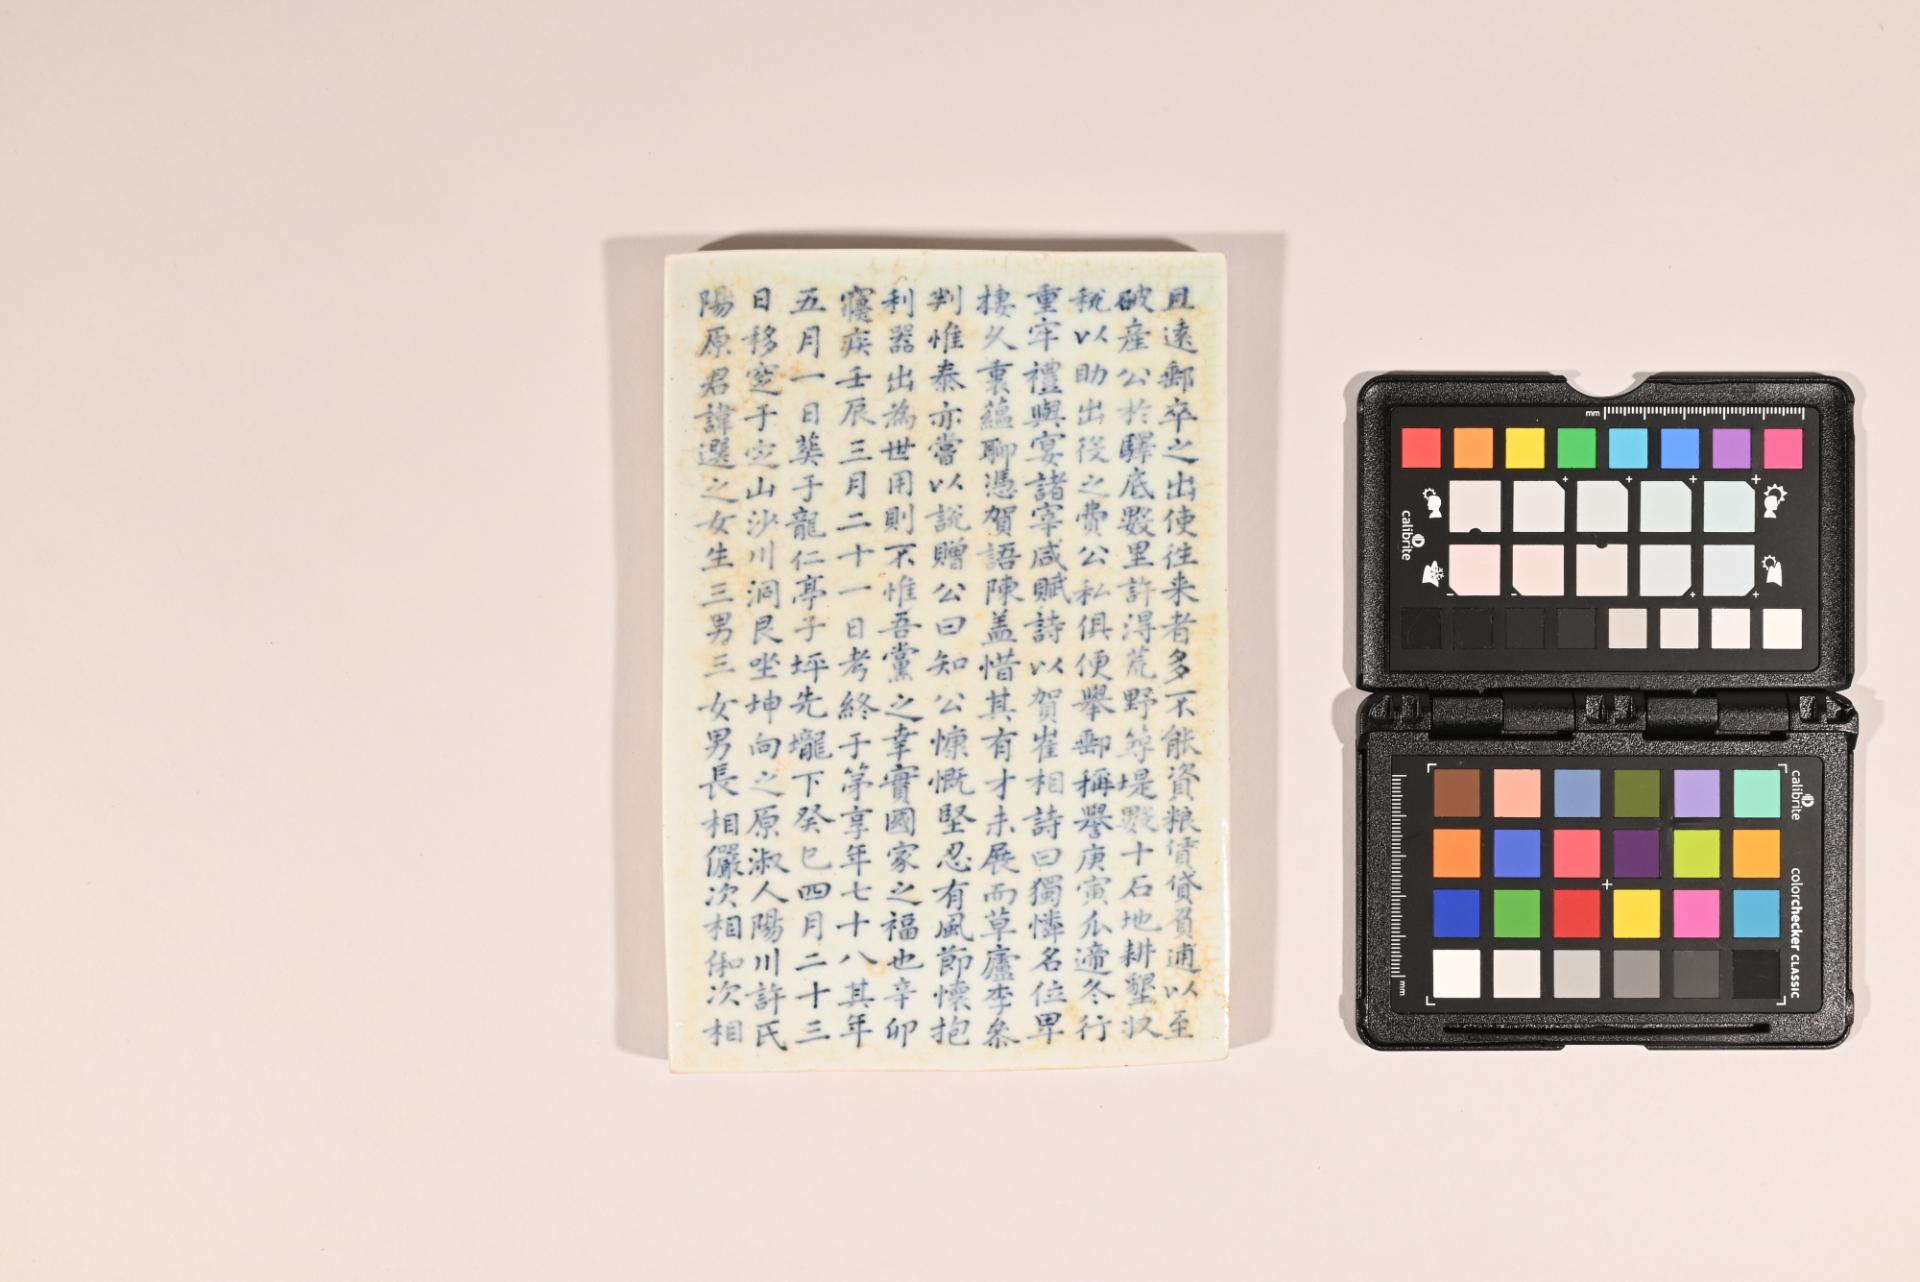 且遠郵卒之出使往来者多不能資粮賃貸負逋以至
破産公於驛底數里許得荒野筑堤數十石地耕墾収
税以助出役之費公私俱便舉郵稱譽庚寅瓜遞冬行
重牢禮與宴諸宰咸賦詩以賀崔相詩曰獨憐名位卑
棲久裏蘊聊憑賀語陳盖惜其有才未展而草廬李叅
判惟泰亦嘗以說贈公曰知公慷慨堅忍有風節懷抱
利器出為世用則不惟吾黨之幸實國家之福也辛卯
寢疾壬辰三月二十一日考終于第享年七十八其年
五月一日葬于龍仁亭子坪先壠下癸巳四月二十三
日移窆于定山沙川洞艮坐坤向之原淑人陽川許氏
陽原君諱選之女生三男三女男長相儼次相次相
calibrite
calibrite
colorchecker CLASSIC
mm
mm